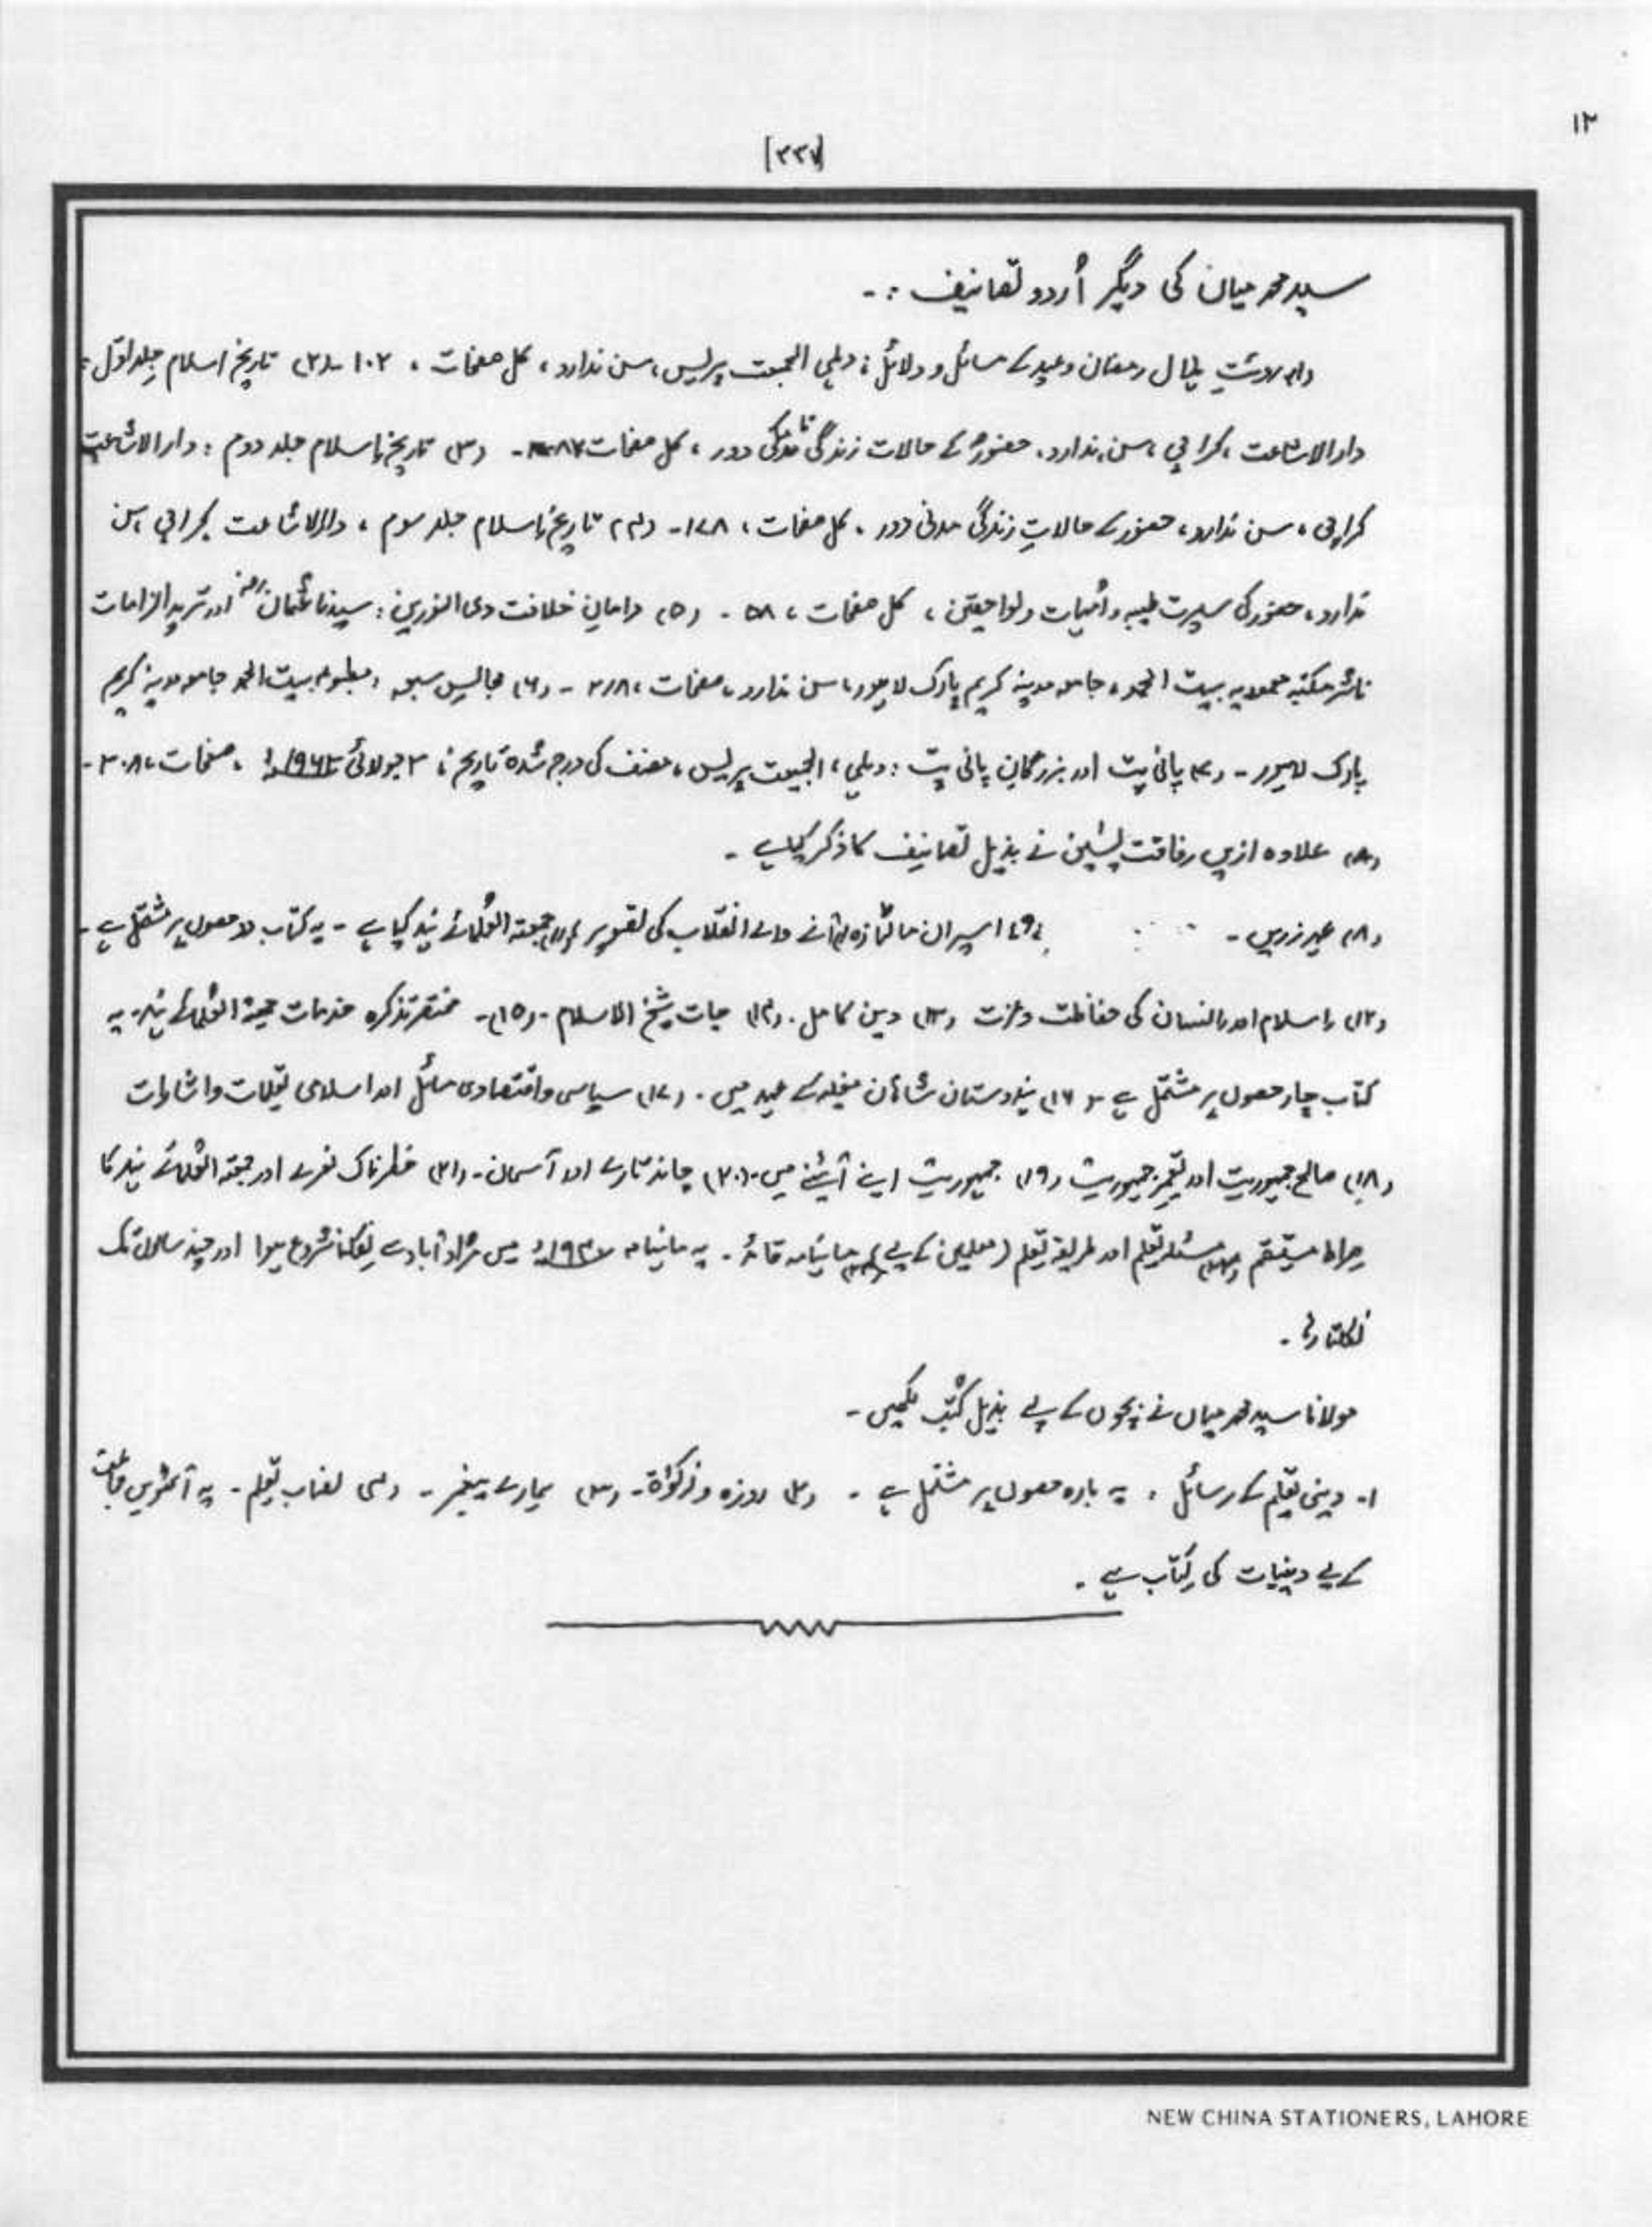 ۱۲
[۳۳۷]
سید محمد میاں کی دیگر اُردو تصانیف :-
(۱) رویتِ ہلال رمضان و عید کے مسائل و دلائل : دہلی الجمعیت پریس، سن ندارد، کل صفحات، ۱۰۲ - (۲) تاریخ اسلام جلد اوّل :
دار الاشاعت، کراچی، سن ندارد، حضورؐ کے حالات زندگی تا مکی دور، کل صفحات ۸۷ - (۳) تاریخ اسلام جلد دوم : دار الاشاعت
کراچی، سن ندارد، حضور کے حالاتِ زندگی مدنی دور، کل صفحات، ۱۷۸ - (۴) تاریخ اسلام جلد سوم، دار الاشاعت کراچی، سن
ندارد، حضور کی سیرت طیبہ و اُمہات و لواحقین، کل صفحات، ۵۸ - (۵) خلافت ذی النورین : سیدنا عثمانؓ اور تردید الزامات
ناشر مکتبہ محمودیہ بیت الحمد، جامعہ مدینہ کریم پارک لاہور، سن ندارد، صفحات، - (۶) مجالس سبعہ : مطبوعہ بیت الحمد جامعہ مدینہ کریم
پارک لاہور - (۷) پانی پت اور بزرگانِ پانی پت : دہلی، الجمیعت پریس، مصنف کی درج شدہ تاریخ، ۳ جولائی ۱۹۶۳ء، صفحات، ۳۰۸ -
(۸) علاوہ ازیں رفاقت نے بذیل تصانیف کا ذکر کیا ہے -
(۸) عہد زریں - (۹) اسیران مالٹا آنے والے انقلاب کی تصویر (۱۱) جمعیتہ العُلمائے ہند کیا ہے - یہ کتاب دو حصوں پر مشتمل ہے -
(۱۲) اسلام اور انسان کی حفاظت و عزت (۱۳) دین کامل - (۱۴) حیات شیخ الاسلام - (۱۵) - مختصر تذکرہ خدمات جمعیتہ العُلمائے ہند - یہ
کتاب چار حصوں پر مشتمل ہے - (۱۶) ہندوستان شاہان مغلیہ کے عہد میں - (۱۷) سیاسی و اقتصادی مسائل اور اسلامی تعلیمات و اشارات
(۱۸) صالح جمہوریت اور تعمیر جمہوریت (۱۹) جمہوریت اپنے آئینے میں - (۲۰) چاند تارے اور آسمان - (۲۱) خطرناک نعرے اور جمعیتہ العُلمائے ہند کا
صراط مستقیم (۲۲) مسئلہ تعلیم اور طریقہ تعلیم (معلمین کے لیے) (۲۳) ماہنامہ قائد - یہ ماہنامہ ۱۹۳۷ء میں مُراد آباد سے نکلنا شروع ہوا اور چند سالوں تک
نکلتا رہا -
مولانا سید محمد میاں نے بچوں کے لیے بذیل کُتب لکھیں -
۱- دینی تعلیم کے رسائل : یہ بارہ حصوں پر مشتمل ہے - (۲) روزہ و زکوٰۃ - (۳) ہمارے پیغمبر - (۴) نصاب تعلیم - یہ آٹھویں جماعت
کے لیے دینیات کی کتاب ہے -
NEW CHINA STATIONERS, LAHORE